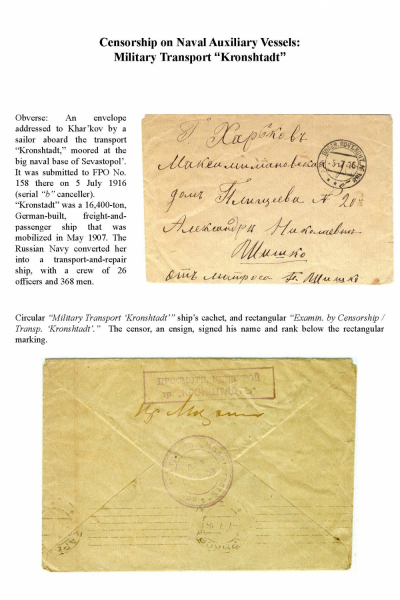 Censorship on Naval Auxiliary Vessels:
Military Transport “Kronshtadt”
Obverse: An envelope
addressed to Khar’kov by a
sailor aboard the transport
“Kronshtadt,” moored at the
big naval base of Sevastopol’.
It was submitted to FPO No.
158 there on 5 July 1916
(serial “b” canceller).
“Kronstadt” was a 16,400-ton,
German-built, freight-and-
passenger ship that was
mobilized in May 1907. The
Russian Navy converted her
into a transport-and-repair
ship, with a crew of 26
officers and 368 men.
Г. Харьковъ
Максимилиановская
домъ Плищеева № 20
Александры Николаевны
Шишко
отъ матроса Г. Шишко
Circular “Military Transport ‘Kronshtadt’” ship’s cachet, and rectangular “Examin. by Censorship /
Transp. ‘Kronshtadt’.” The censor, an ensign, signed his name and rank below the rectangular
marking.